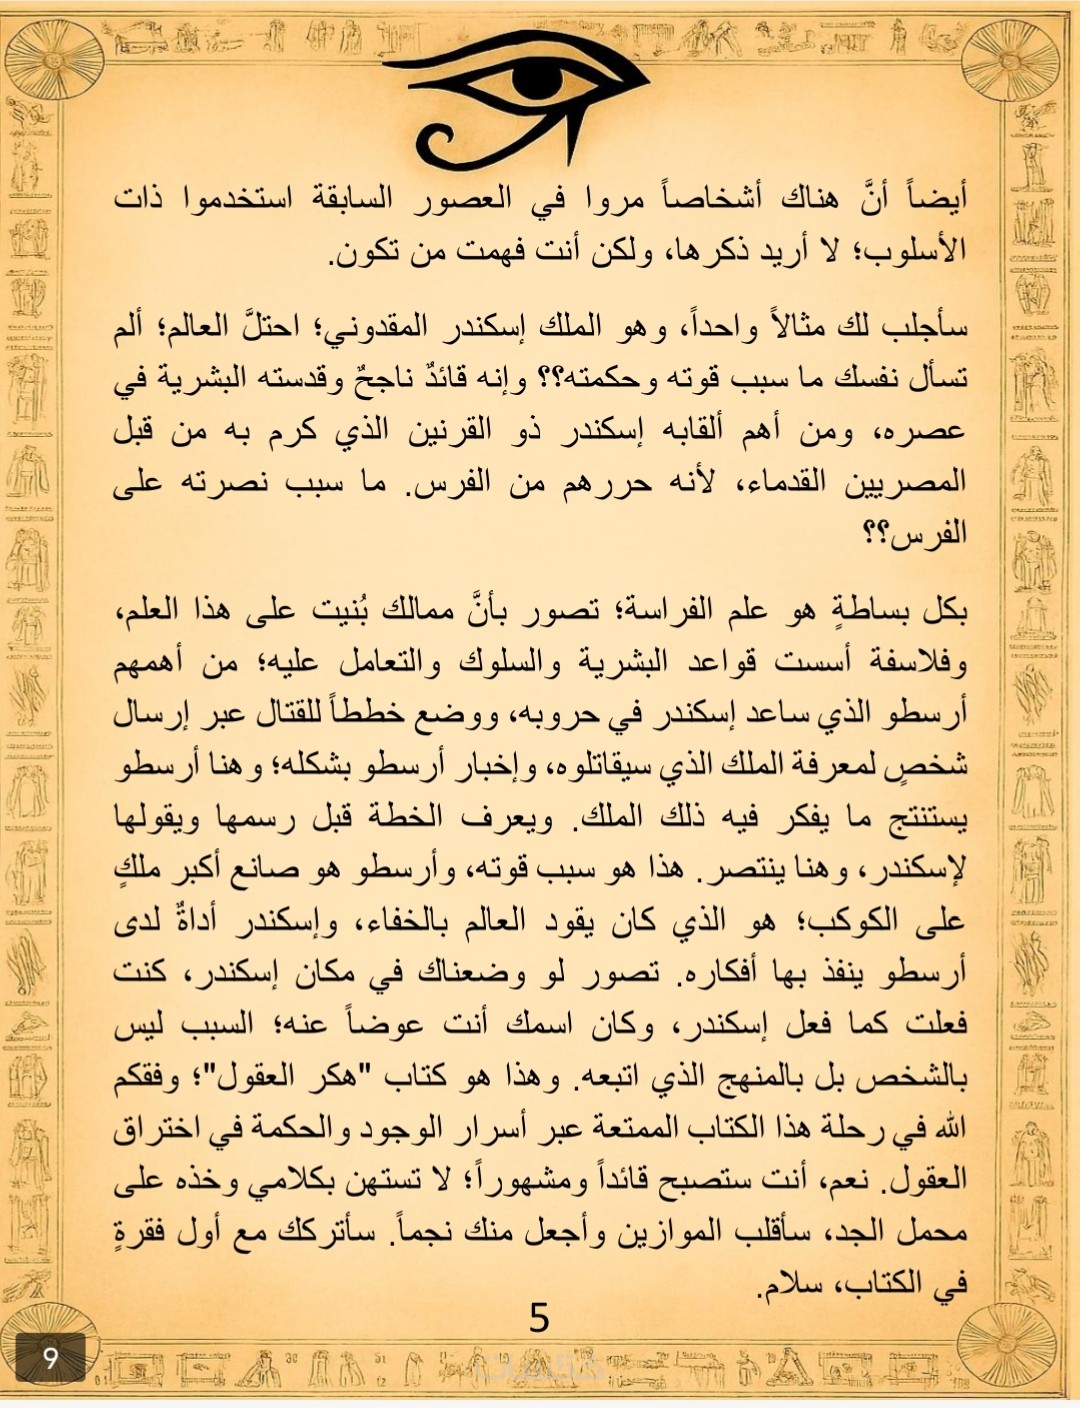 أيضاً أنَّ هناك أشخاصاً مروا في العصور السابقة استخدموا ذات
الأسلوب؛ لا أريد ذكرها، ولكن أنت فهمت من تكون.
سأجلب لك مثالاً واحداً، وهو الملك إسكندر المقدوني؛ احتلَّ العالم؛ ألم
تسأل نفسك ما سبب قوته وحكمته؟؟ وإنه قائدٌ ناجحٌ وقدسته البشرية في
عصره، ومن أهم ألقابه إسكندر ذو القرنين الذي كرم به من قبل
المصريين القدماء، لأنه حررهم من الفرس. ما سبب نصرته على
الفرس؟؟
بكل بساطةٍ هو علم الفراسة؛ تصور بأنَّ ممالك بُنيت على هذا العلم،
وفلاسفة أسست قواعد البشرية والسلوك والتعامل عليه؛ من أهمهم
أرسطو الذي ساعد إسكندر في حروبه، ووضع خططاً للقتال عبر إرسال
شخصٍ لمعرفة الملك الذي سيقاتلوه، وإخبار أرسطو بشكله؛ وهنا أرسطو
يستنتج ما يفكر فيه ذلك الملك. ويعرف الخطة قبل رسمها ويقولها
لإسكندر، وهنا ينتصر. هذا هو سبب قوته، وأرسطو هو صانع أكبر ملكٍ
على الكوكب؛ هو الذي كان يقود العالم بالخفاء، وإسكندر أداةٌ لدى
أرسطو ينفذ بها أفكاره. تصور لو وضعناك في مكان إسكندر، كنت
فعلت كما فعل إسكندر، وكان اسمك أنت عوضاً عنه؛ السبب ليس
بالشخص بل بالمنهج الذي اتبعه. وهذا هو كتاب "هكر العقول"؛ وفقكم
الله في رحلة هذا الكتاب الممتعة عبر أسرار الوجود والحكمة في اختراق
العقول. نعم، أنت ستصبح قائداً ومشهوراً؛ لا تستهن بكلامي وخذه على
محمل الجد، سأقلب الموازين وأجعل منك نجماً. سأتركك مع أول فقرةٍ
في الكتاب، سلام.
5
9